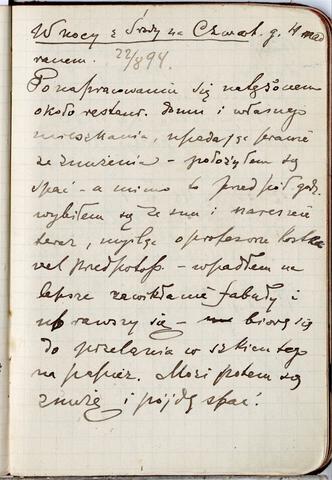 W nocy z Środy na Czwart. g. 4 nad
ranem. 22/8 894.
Po napracowaniu się
około restaur. domu i własnego
mieszkania, upadając prawie
ze znużenia – położyłem się
spać – a mimo to przed pół godz.
wybiłem się ze snu i nareszcie
teraz, myśląc o profesorze Kostka
vel przedpotop. – wpadłem na
lepsze zawikłanie fabuły i
ubrawszy się – biorę się
do przelania w szkicu tego
na papier. Może potem się
znużę i pójdę spać.